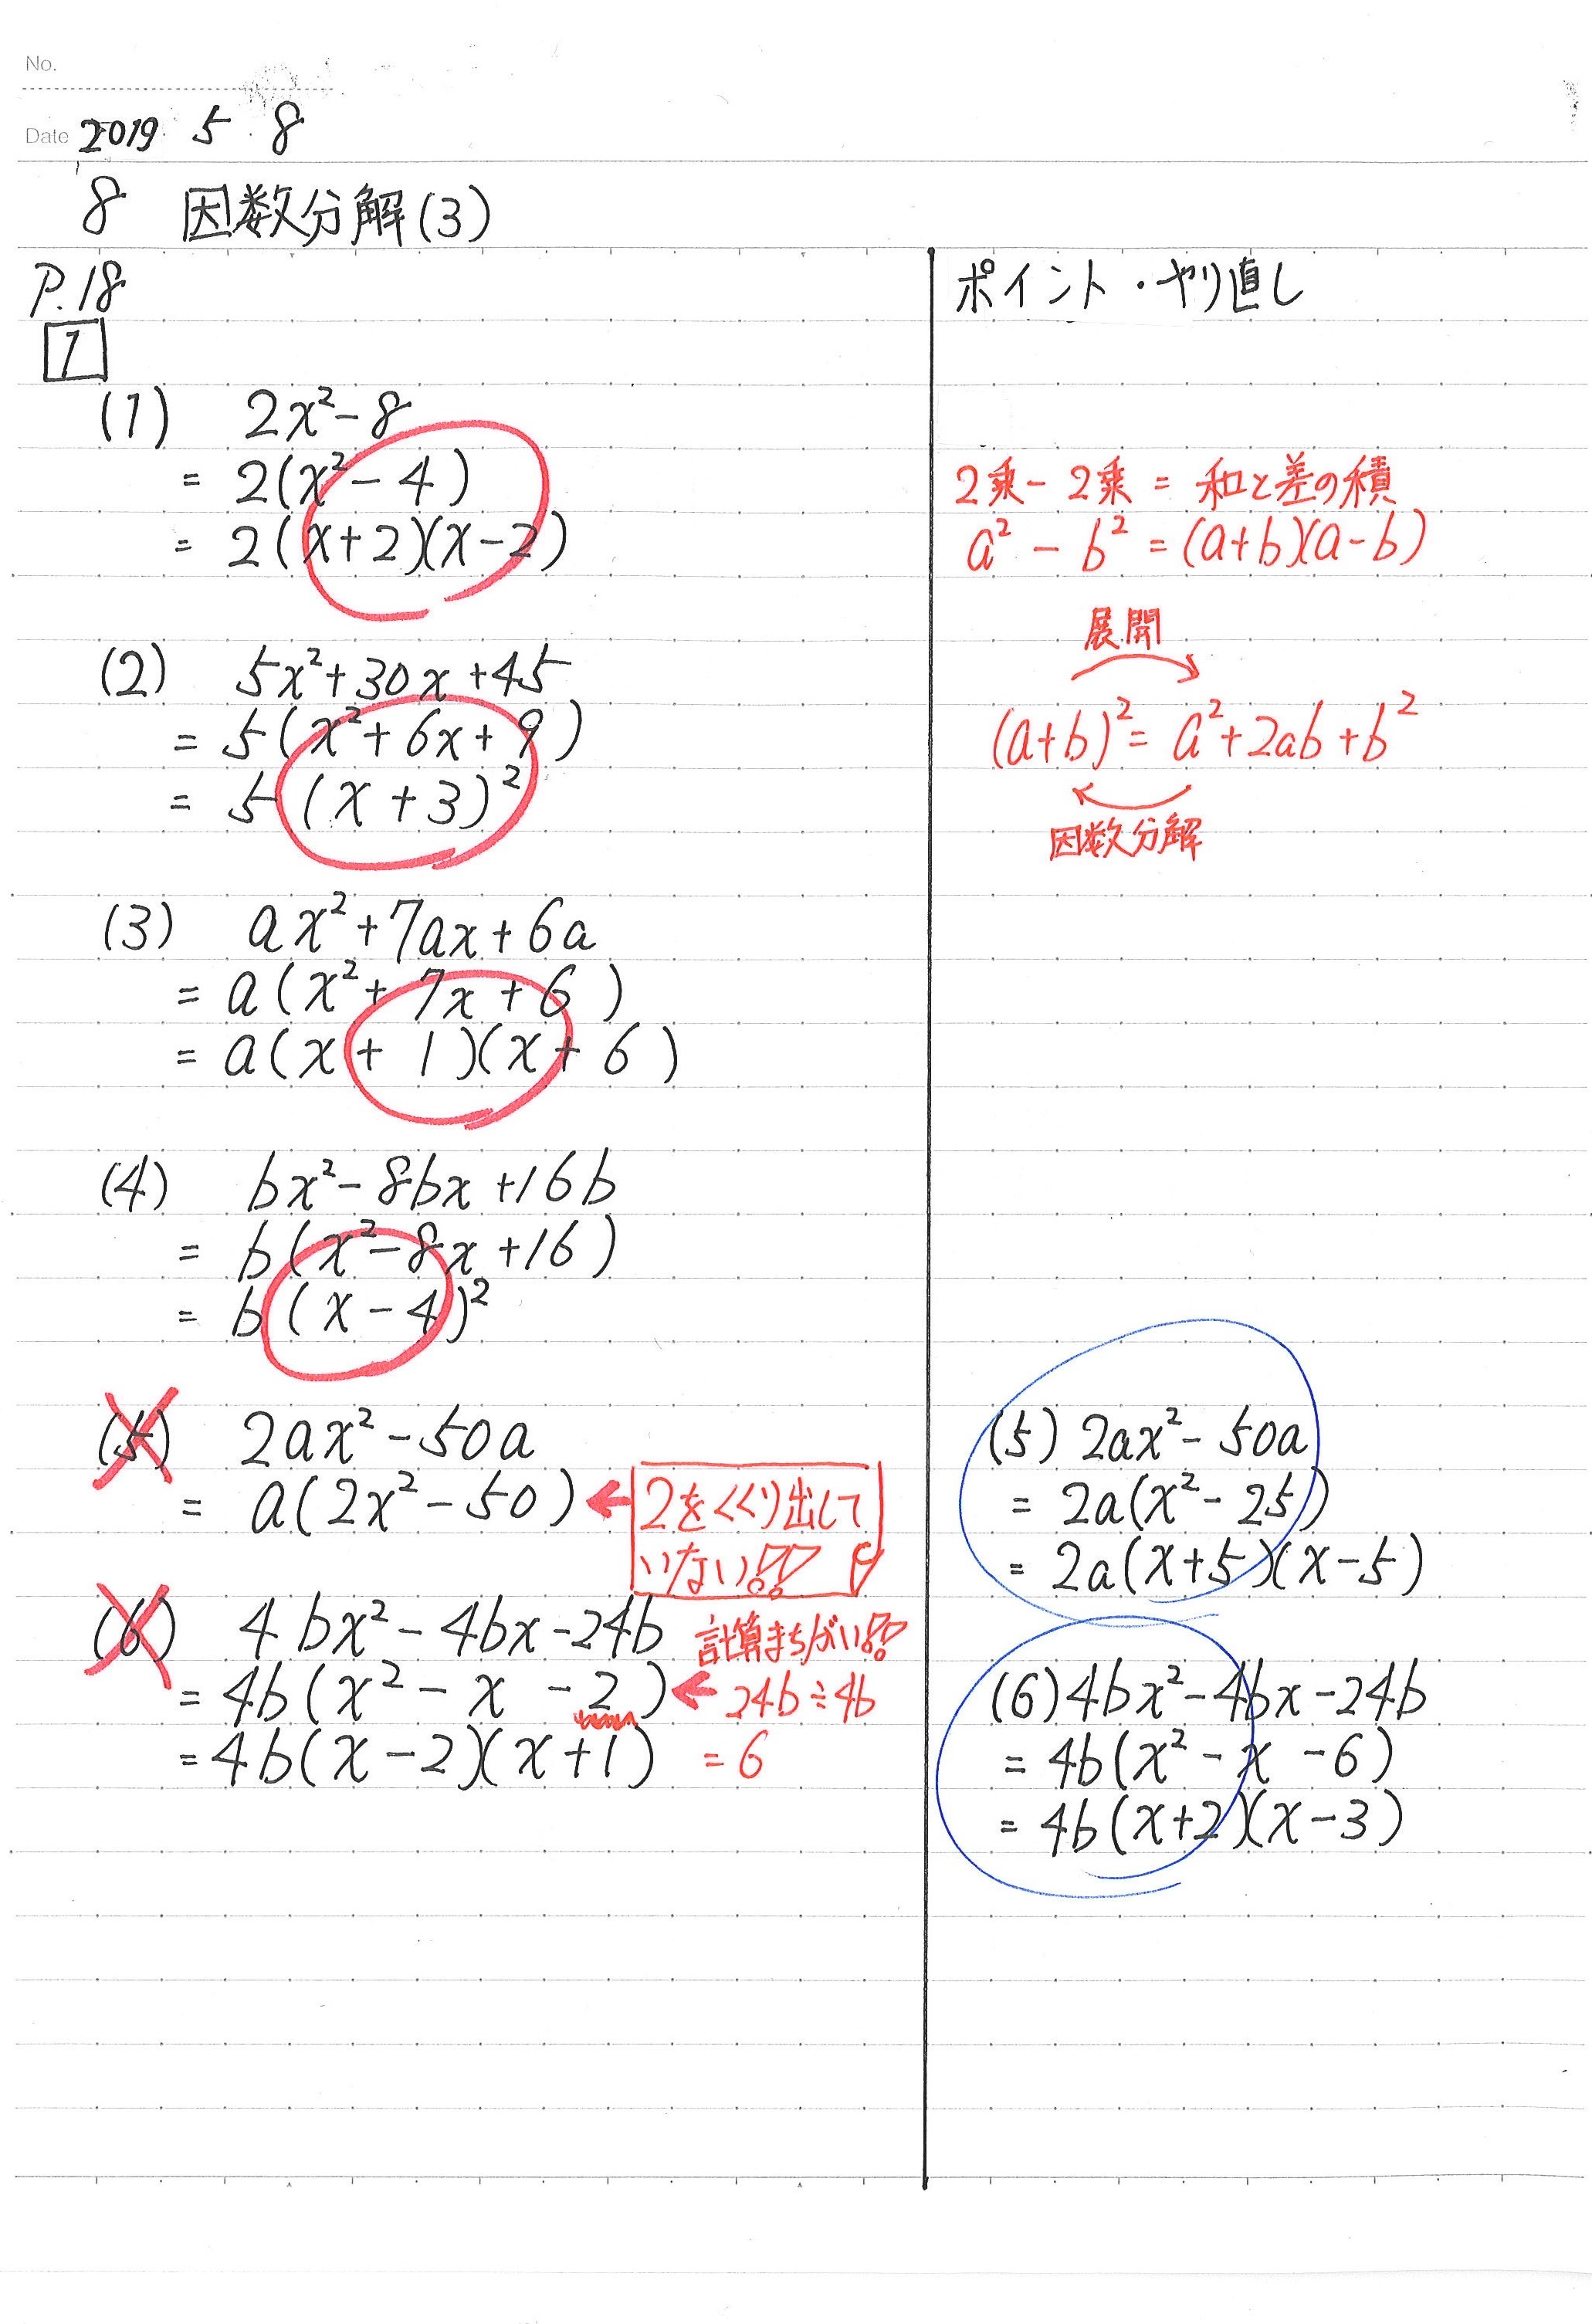 No.
Date 2019 5 8
8 因数分解(3)
P.18
1
(1) 2x²-8
= 2(x²-4)
= 2(x+2)(x-2)
(2) 5x²+30x+45
= 5(x²+6x+9)
= 5(x+3)²
(3) ax²+7ax+6a
= a(x²+7x+6)
= a(x+1)(x+6)
(4) bx²-8bx+16b
= b(x²-8x+16)
= b(x-4)²
(5) 2ax²-50a
= a(2x²-50)
2をくくり出して
いない!!
(6) 4bx²-4bx-24b
計算まちがい!!
= 4b(x²-x-2)
24b÷4b
= 4b(x-2)(x+1)
= 6
ポイント・やり直し
2乗-2乗 = 和と差の積
a²-b² = (a+b)(a-b)
展開
(a+b)² = a²+2ab+b²
因数分解
(5) 2ax²-50a
= 2a(x²-25)
= 2a(x+5)(x-5)
(6) 4bx²-4bx-24b
= 4b(x²-x-6)
= 4b(x+2)(x-3)